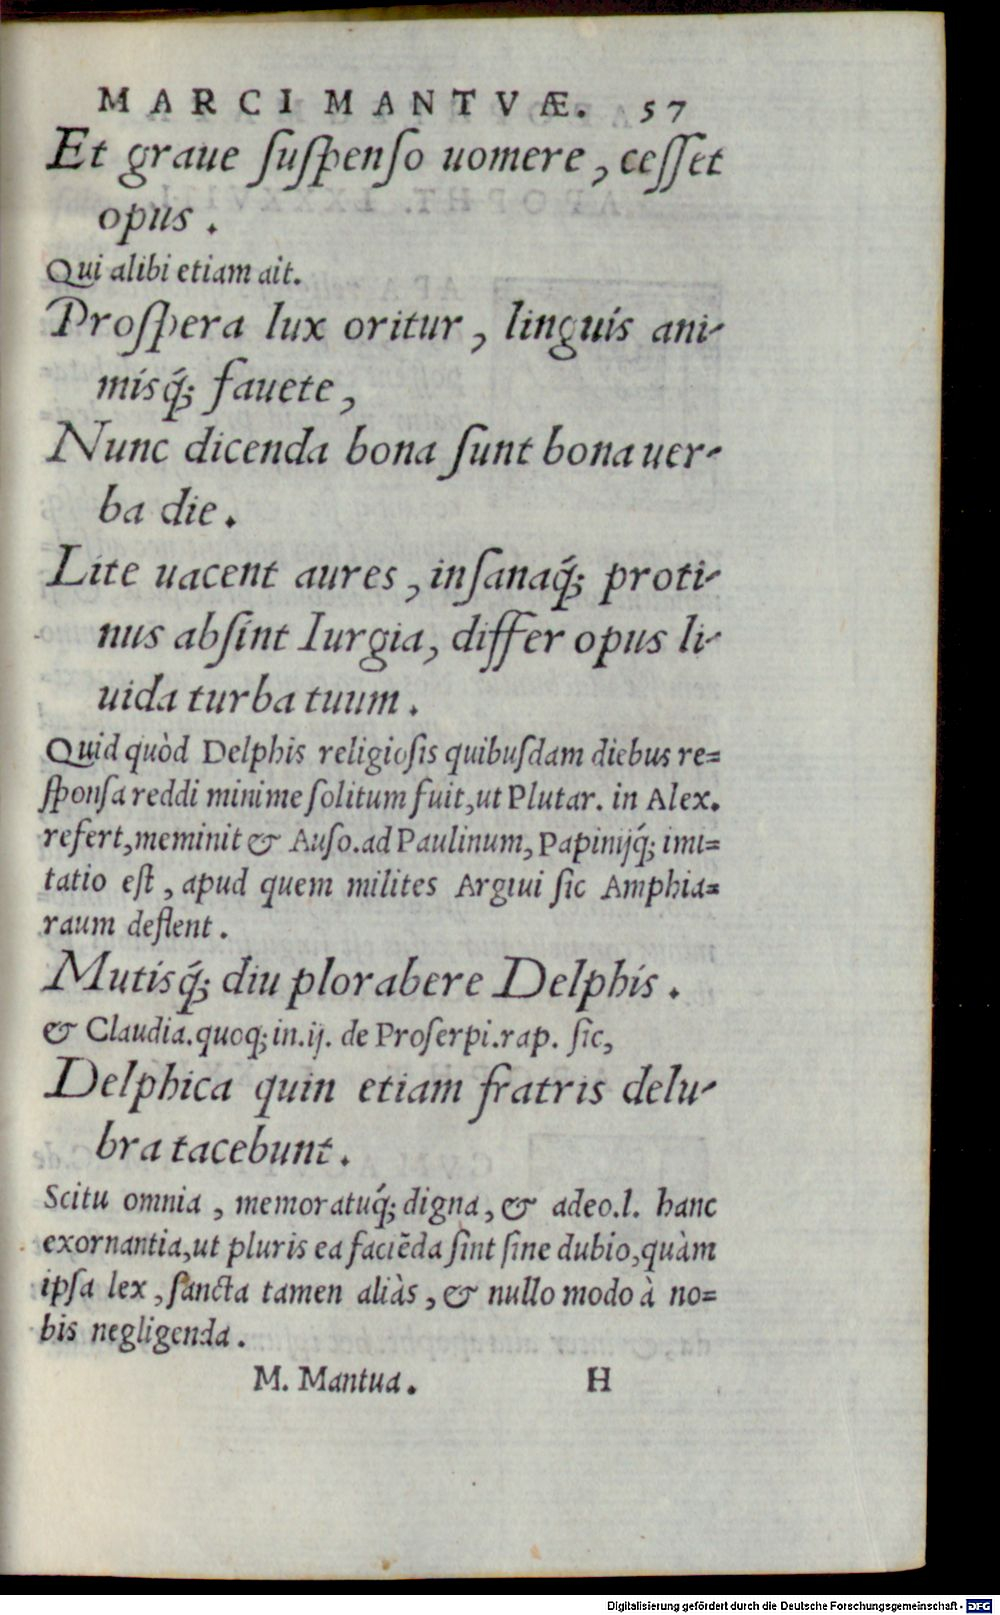 MARCI MANTVÆ. 57
Et graue ſuſpenſo uomere, ceſſet
opus.
Qui alibi etiam ait.
Proſpera lux oritur, linguis ani-
misq́; fauete,
Nunc dicenda bona ſunt bona uer-
ba die.
Lite uacent aures, inſanaq́; proti-
nus abſint Iurgia, differ opus li-
uida turba tuum.
Quid quòd Delphis religioſis quibuſdam diebus re=
ſponſa reddi minime ſolitum fuit, ut Plutar. in Alex.
refert, meminit & Auſo. ad Paulinum, Papinijq́; imi=
tatio eſt, apud quem milites Argiui ſic Amphia=
raum deflent.
Mutisq́; diu plorabere Delphis.
& Claudia. quoq; in. ij. de Proſerpi. rap. ſic,
Delphica quin etiam fratris delu-
bra tacebunt.
Scitu omnia, memoratuq́; digna, & adeo. l. hanc
exornantia, ut pluris ea faciēda ſint ſine dubio, quàm
ipſa lex, ſancta tamen aliàs, & nullo modo à no=
bis negligenda.
M. Mantua. H
Digitalisierung gefördert durch die Deutsche Forschungsgemeinschaft - DFG